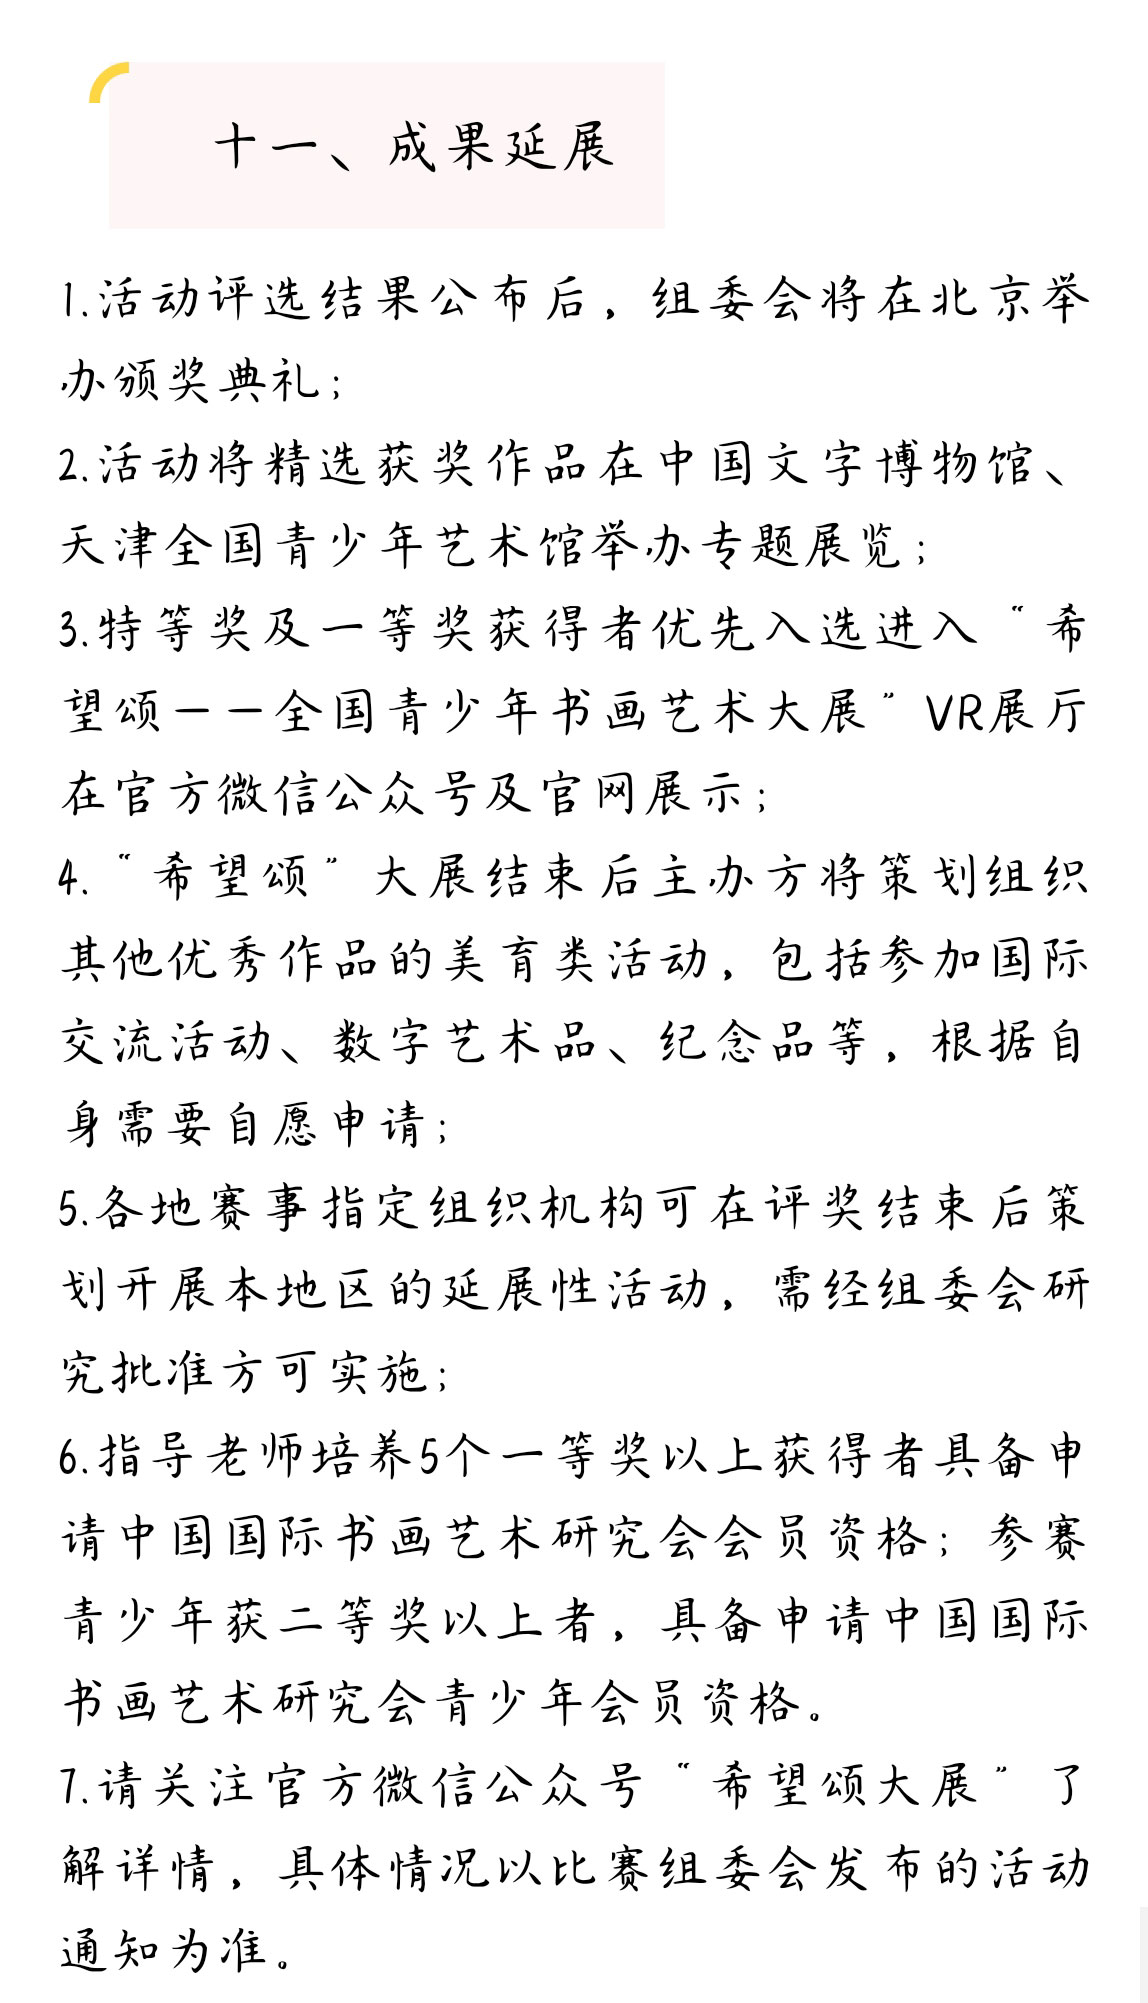 十一、成果延展
1.活动评选结果公布后，组委会将在北京举
办颁奖典礼；
2.活动将精选获奖作品在中国文字博物馆、
天津全国青少年艺术馆举办专题展览；
3.特等奖及一等奖获得者优先入选进入“希
望颂——全国青少年书画艺术大展”VR展厅
在官方微信公众号及官网展示；
4.“希望颂”大展结束后主办方将策划组织
其他优秀作品的美育类活动，包括参加国际
交流活动、数字艺术品、纪念品等，根据自
身需要自愿申请；
5.各地赛事指定组织机构可在评奖结束后策
划开展本地区的延展性活动，需经组委会研
究批准方可实施；
6.指导老师培养5个一等奖以上获得者具备申
请中国国际书画艺术研究会会员资格；参赛
青少年获二等奖以上者，具备申请中国国际
书画艺术研究会青少年会员资格。
7.请关注官方微信公众号“希望颂大展”了
解详情，具体情况以比赛组委会发布的活动
通知为准。